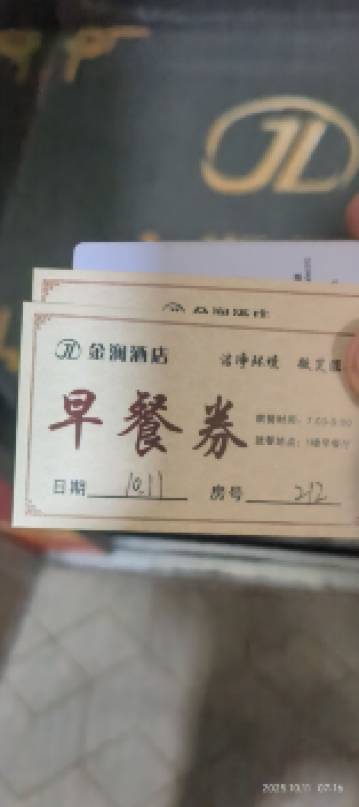 JL
JL 金润酒店
洁净环境 微笑服
早餐券
就餐时间：7:00-9:00
就餐地点：1楼早餐厅
日期 10.11 房号 212
2025.10.11 07:16